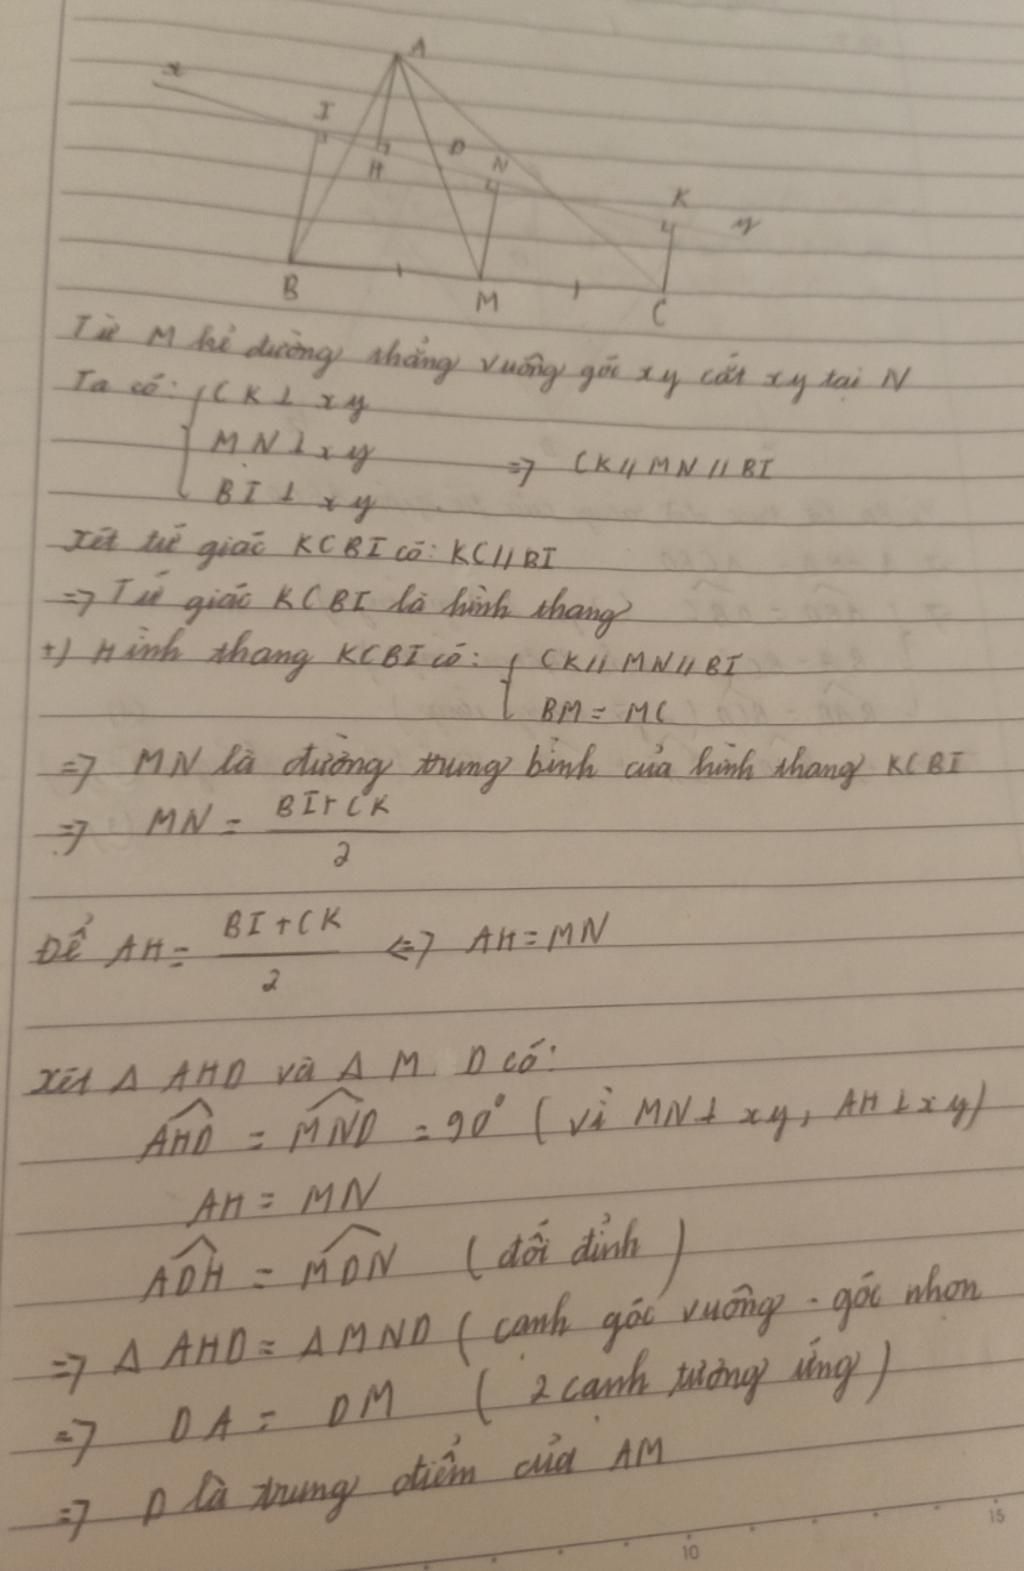 A
x
I
H
D
N
K
y
B
M
C
Từ M kẻ đường thẳng vuông góc xy cắt xy tại N
Ta có: { CK ⊥ xy
MN ⊥ xy => CK // MN // BI
BI ⊥ xy
Xét tứ giác KCBI có: KC // BI
=> Tứ giác KCBI là hình thang
+) Hình thang KCBI có: { CK // MN // BI
BM = MC
=> MN là đường trung bình của hình thang KCBI
=> MN = (BI + CK) / 2
Để AH = (BI + CK) / 2 <=> AH = MN
Xét Δ AHD và Δ M D có:
AHD = MND = 90° ( vì MN ⊥ xy, AH ⊥ xy)
AH = MN
ADH = MDN ( đối đỉnh )
=> Δ AHD = Δ MND ( cạnh góc vuông - góc nhọn
=> DA = DM ( 2 cạnh tương ứng )
=> D là trung điểm của AM
10
15